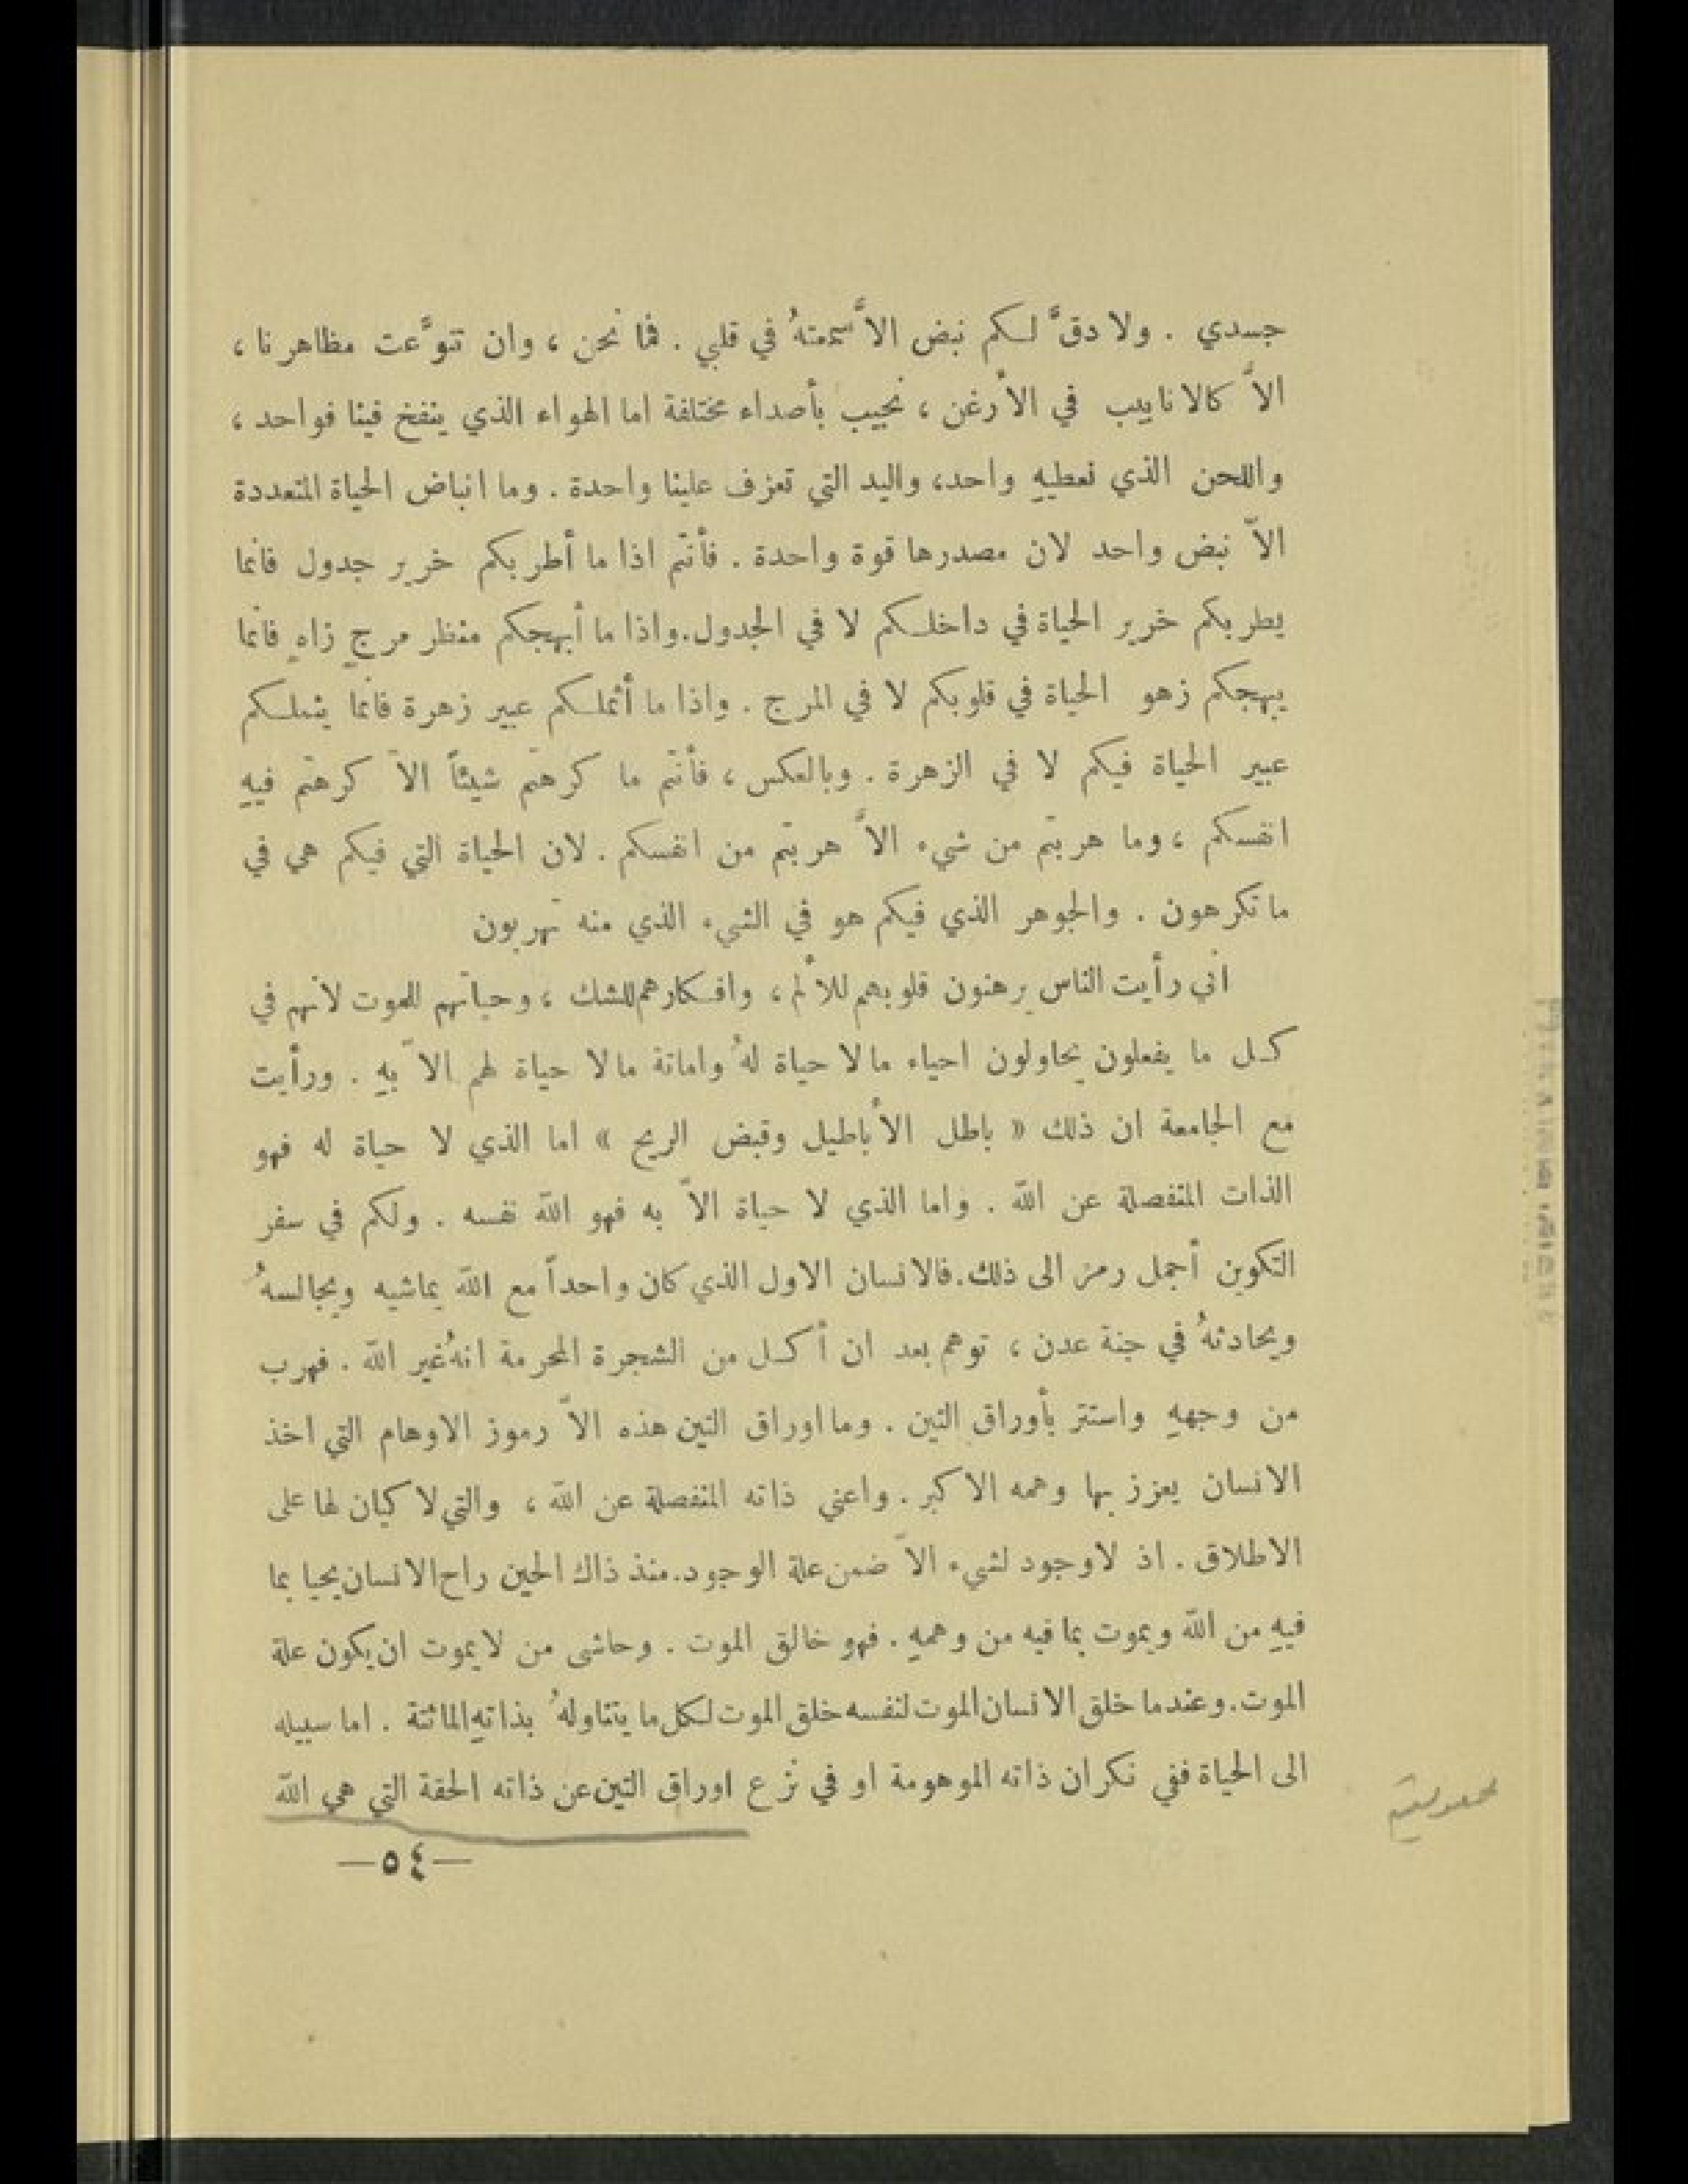 جسدي . ولا دقَّ لكم نبض الاَّ سمعتهُ في قلبي . فما نحن ، وان تنوَّعت مظاهرنا ،
الاَّ كالانابيب في الأرغن ، نجيب بأصداء مختلفة اما الهواء الذي ينفخ فينا فواحد ،
واللحن الذي نعطيهِ واحد، واليد التي تعزف علينا واحدة . وما انباض الحياة المتعددة
الاّ نبض واحد لان مصدرها قوة واحدة . فأنتم اذا ما أطربكم خرير جدول فانما
يطربكم خرير الحياة في داخلكم لا في الجدول.واذا ما أبهجكم منظر مرجٍ زاهٍ فانما
يبهجكم زهو الحياة في قلوبكم لا في المرج . واذا ما أثملكم عبير زهرة فانما يثملكم
عبير الحياة فيكم لا في الزهرة . وبالعكس ، فأنتم ما كرهتم شيئاً الاّ كرهتم فيهِ
انفسكم ، وما هربتم من شيء الاَّ هربتم من انفسكم . لان الحياة التي فيكم هي في
ما تكرهون . والجوهر الذي فيكم هو في الشيء الذي منه تهربون
اني رأيت الناس يرهنون قلوبهم للألم ، وافكارهم للشك ، وحياتهم للموت لانهم في
كل ما يفعلون يحاولون احياء مالا حياة لهُ واماتة مالا حياة لهم الاّ بهِ . ورأيت
مع الجامعة ان ذلك « باطل الأباطيل وقبض الريح » اما الذي لا حياة له فهو
الذات المنفصلة عن الله . واما الذي لا حياة الاّ به فهو الله نفسه . ولكم في سفر
التكوين أجمل رمز الى ذلك.فالانسان الاول الذي كان واحداً مع الله يماشيه ويجالسهُ
ويحادثهُ في جنة عدن ، توهم بعد ان أكل من الشجرة المحرمة انهُ غير الله . فهرب
من وجههِ واستتر بأوراق التين . وما اوراق التين هذه الاّ رموز الاوهام التي اخذ
الانسان يعزز بها وهمه الاكبر . واعني ذاته المنفصلة عن الله ، والتي لا كيان لها على
الاطلاق . اذ لا وجود لشيء الاّ ضمن علة الوجود.منذ ذاك الحين راح الانسان يحيا بما
فيهِ من الله ويموت بما فيه من وهمهِ . فهو خالق الموت . وحاشى من لا يموت ان يكون علة
الموت.وعندما خلق الانسان الموت لنفسه خلق الموت لكل ما يتناولهُ بذاتهِ المائتة . اما سبيله
الى الحياة ففي نكران ذاته الموهومة او في نزع اوراق التين عن ذاته الحقة التي هي الله
—٥٤—